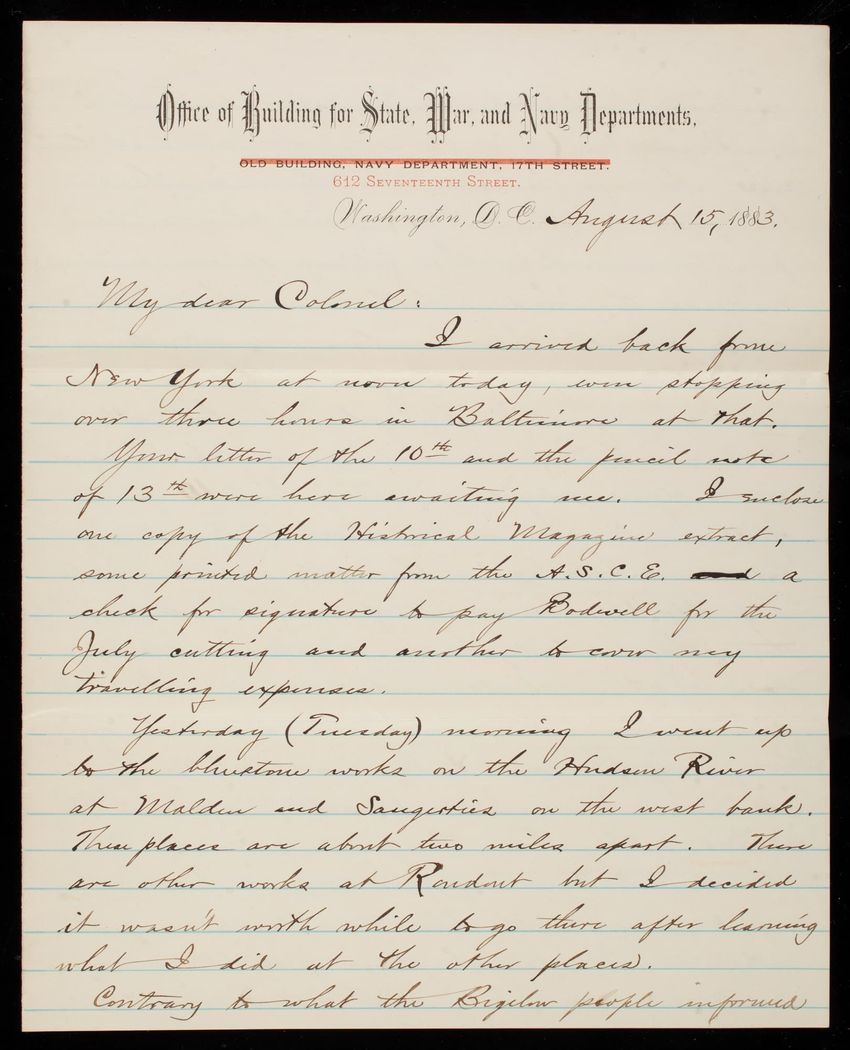 Office of Building for State, War, and Navy Departments,
OLD BUILDING, NAVY DEPARTMENT, 17TH STREET.
612 SEVENTEENTH STREET.
Washington, D. C. August 15, 1883.
My dear Colonel:
I arrived back from
New York at noon today, even stopping
over three hours in Baltimore at that.
Your letter of the 10th and the pencil note
of 13th were here awaiting me. I enclose
one copy of the Historical Magazine extract,
some printed matter from the A.S.C.E. and a
check for signature to pay Bodwell for the
July cutting and another to cover my
travelling expenses.
Yesterday (Tuesday) morning I went up
to the bluestone works on the Hudson River
at Malden and Saugerties on the west bank.
These places are about two miles apart. There
are other works at Rondout but I decided
it wasn't worth while to go there after learning
what I did at the other places.
Contrary to what the Bigelow people informed